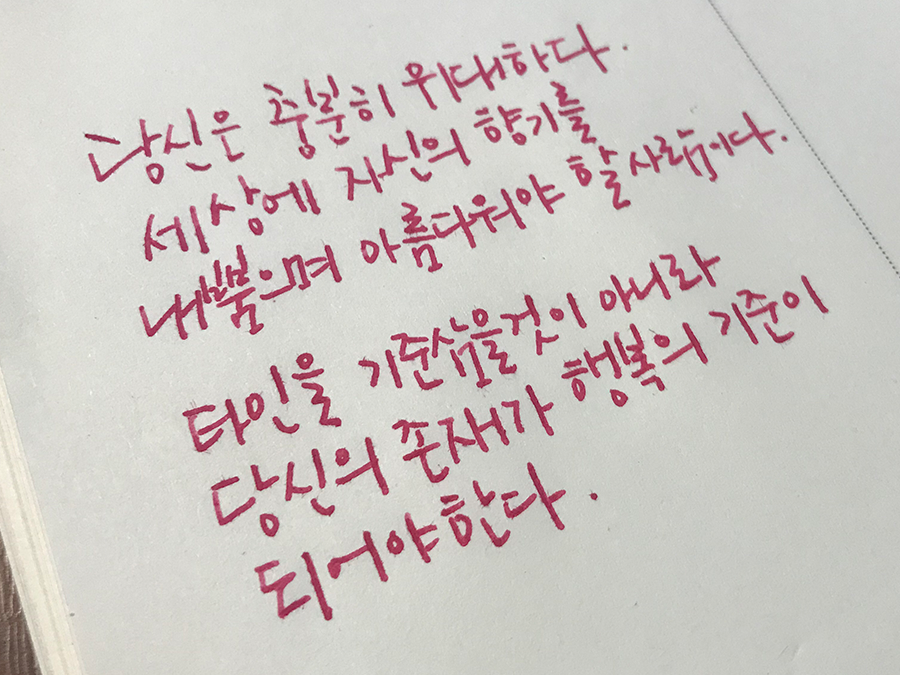 당신은 충분히 위대하다.
세상에 자신의 향기를
내뿜으며 아름다워야 할 사람이다.
타인을 기준삼을것이 아니라
당신의 존재가 행복의 기준이
되어야한다.